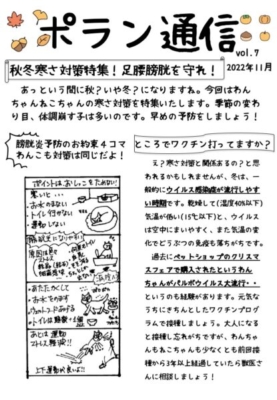 ポラン通信
vol.7
2022年11月
秋冬寒さ対策特集！足腰膀胱を守れ！
あっという間に秋？いや冬？になりますね。今回はわん
ちゃんねこちゃんの寒さ対策を特集いたします。季節の変わ
り目、体調崩す子は多いのです。早めの予防をしましょう！
膀胱炎予防のお約束４コマ
わんこも対策は同じだよ！
ポイントは、おしっこをためない！
寒いと…
・お水のまない
・トイレ行かない
・運動しない
・あたたかくして
・お水をのます
・トイレは清潔
あとは運動
ストレス発散！！
上下運動が良いよ！！
ところでワクチン打ってますか？
え？寒さ対策と関係あるの？と思
われるかもしれませんが、冬は、一
般的にウイルス感染症が流行しやす
い時期です。乾燥して（湿度40％以下）
気温が低い（15℃以下）と、ウイルス
は空中にまいやすく、また気温の変
化でどうぶつの免疫も落ちがちです。
過去にペットショップのクリスマ
スフェアで購入されたというわん
ちゃんがパルボウイルス大流行・・
というのも経験があります。元気な
うちにきちんとしたワクチンプログ
ラムで接種しましょう。大人になる
と接種し忘れがちですが、わんちゃ
んもねこちゃんも少なくとも前回接
種から３年以上経過していたら獣医さ
んに相談しましょう！